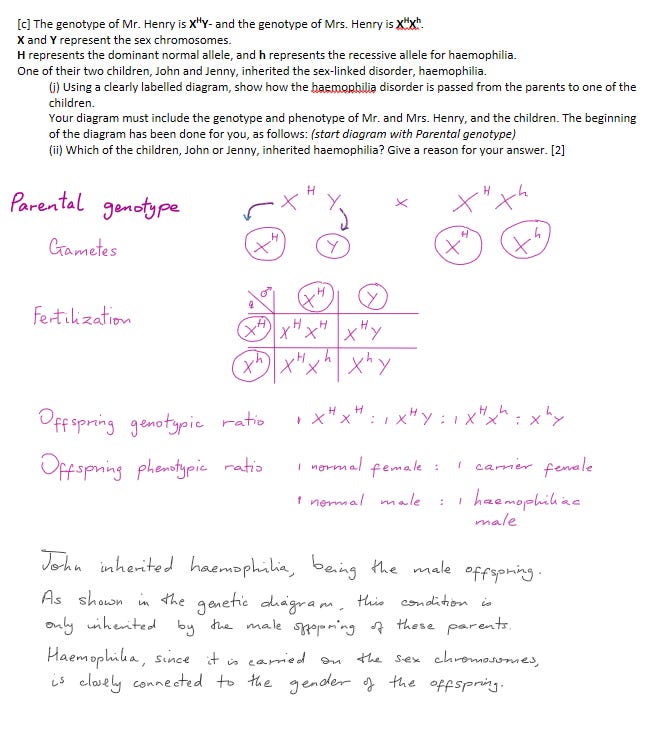 [c] The genotype of Mr. Henry is XᴴY- and the genotype of Mrs. Henry is XᴴXʰ.
X and Y represent the sex chromosomes.
H represents the dominant normal allele, and h represents the recessive allele for haemophilia.
One of their two children, John and Jenny, inherited the sex-linked disorder, haemophilia.
(i) Using a clearly labelled diagram, show how the haemophilia disorder is passed from the parents to one of the
children.
Your diagram must include the genotype and phenotype of Mr. and Mrs. Henry, and the children. The beginning
of the diagram has been done for you, as follows: (start diagram with Parental genotype)
(ii) Which of the children, John or Jenny, inherited haemophilia? Give a reason for your answer. [2]
Parental genotype Xᴴ Y × Xᴴ Xʰ
Gametes Xᴴ Y Xᴴ Xʰ
Fertilization ♀ ♂ Xᴴ Y
Xᴴ XᴴXᴴ XᴴY
Xʰ XᴴXʰ XʰY
Offspring genotypic ratio 1 XᴴXᴴ : 1 XᴴY : 1 XᴴXʰ : XʰY
Offspring phenotypic ratio 1 normal female : 1 carrier female
1 normal male : 1 haemophiliac
male
John inherited haemophilia, being the male offspring.
As shown in the genetic diagram, this condition is
only inherited by the male of these parents.
Haemophilia, since it is carried on the sex chromosomes,
is closely connected to the gender of the offspring.